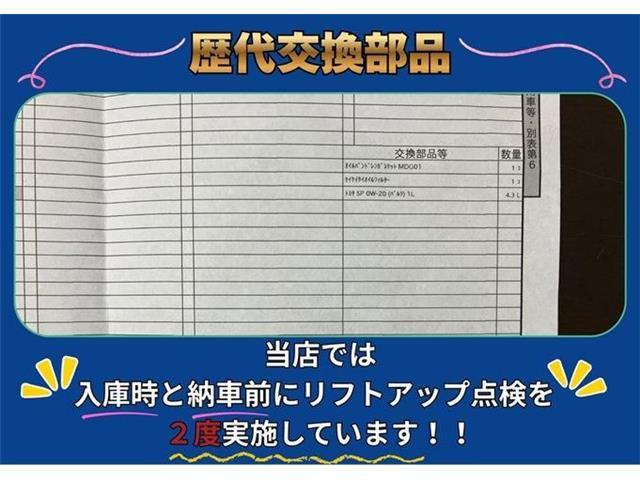 歴代交換部品
車等・別表第6
交換部品等 数量
ｵｲﾙﾊﾟﾝﾄﾞﾚﾝｶﾞｽｹｯﾄ MDG01 1 ｺ
1 ｺ
ﾄﾖﾀ SP 0W-20 (ﾊﾞﾙｸ) 1L 4.3 L
当店では
入庫時と納車前にリフトアップ点検を
２度実施しています！！